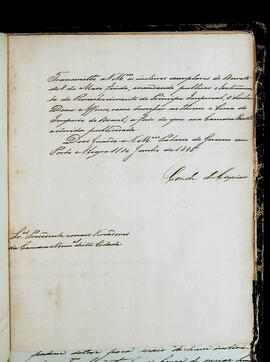 Transmitto a V. M.ces os inclusos exemplares do Decreto
de 8 de Maio findo, mandando publicar o Instrumento
de Reconhecimento do Principe Imperial, o Senhor
Dom Affonso, como Sucessor ao Throno e Coroa do
Imperio do Brasil, a fim de que essa Camara lhe dê
a devida publicidade.
Deos Guarde a V. M.ces Palacio do Governo em
Porto Alegre 11 de Junho de 1845.
Conde de Caxias
Sr.s Presidente e mais Vereadores
da Camara Mun.al desta Cidade